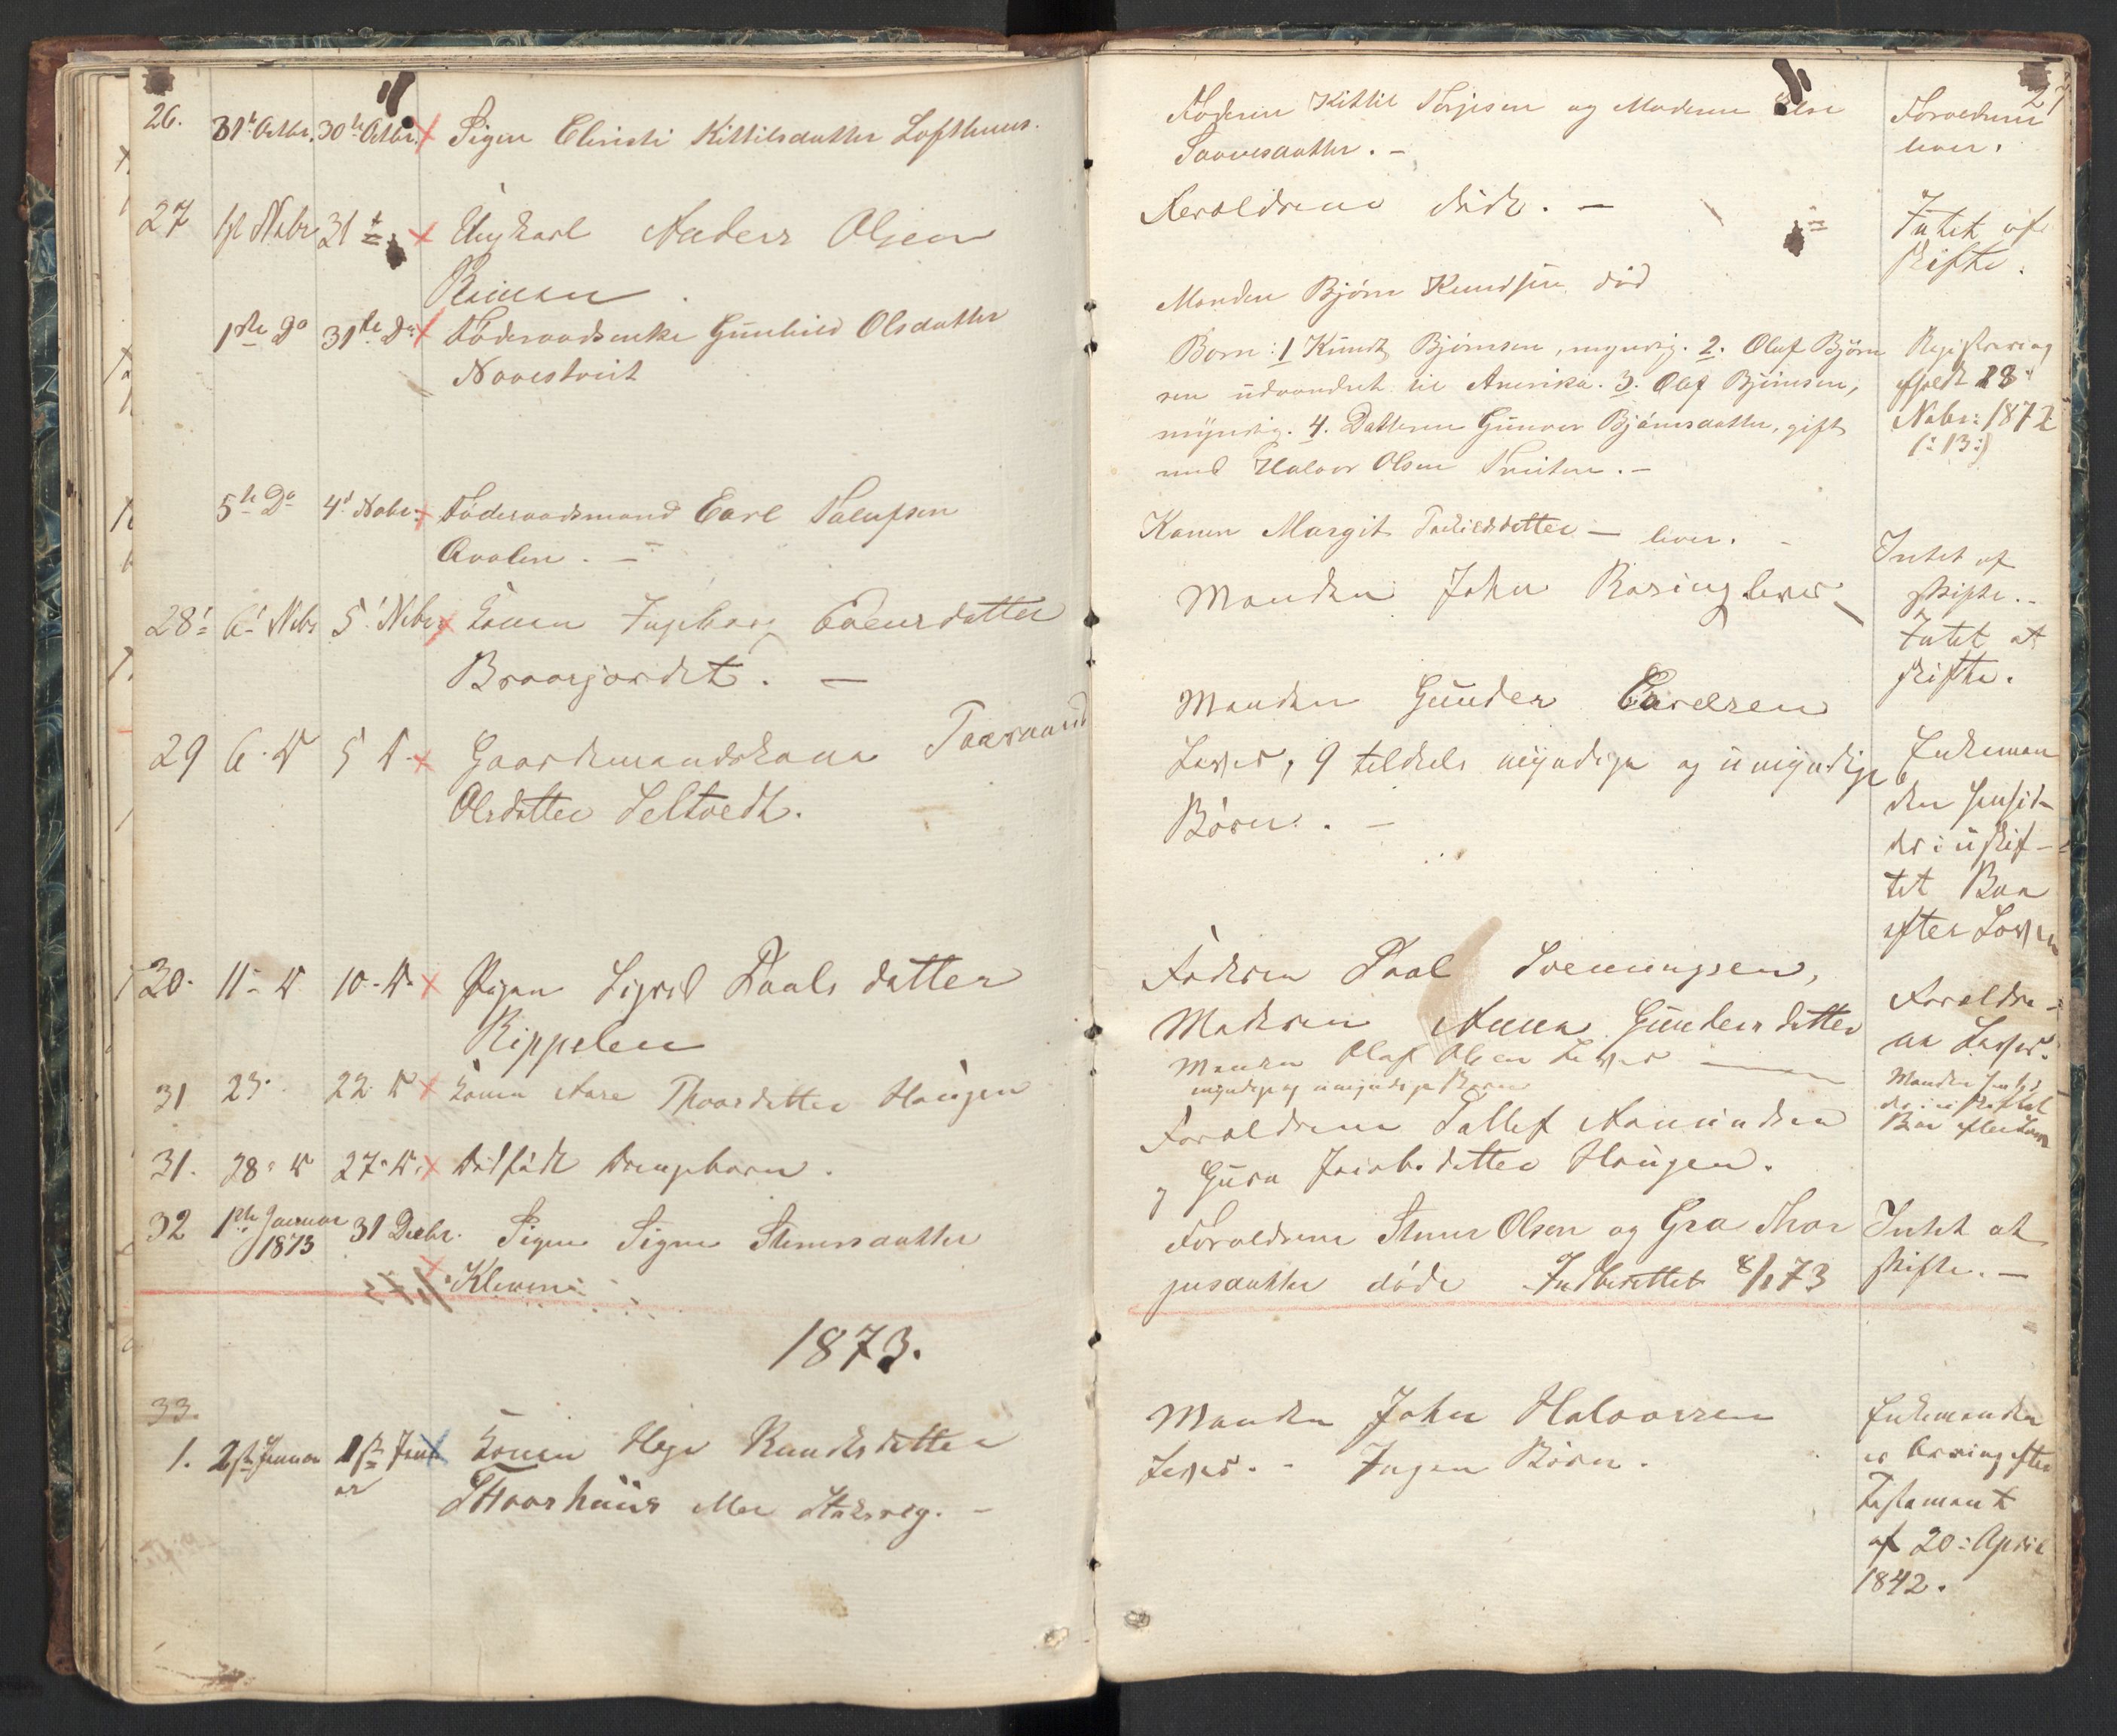 27
26. 31t Octbr. 30te Octbr. Pigen Christi Kittilsdatter Lofthuus.
27 1st Nobr 31te Ungkarl Anders Olsen
1ste Do 31te Do Föderaadsenke Gunhild Olsdatter
5te Do 4d Nobr. Föderaadsmand Carl
28. 6. Nbr 5. Nbr Konen Ingeborg
29 6. D 5 D. Gaardemandskona
Olsdatter Seltvedt.
30. 11. D 10. D. Pigen Sigrid Paals datter
Rippelen
31 23. 22 D Konen Aase Thoordatter Haugen
31. 28. D 27. D. Dödfödt Drengebarn.
32 1ste Januar 1873 31 Decbr. Pigen Signe Steenersdatter
Kleven
1873.
33.
1. 2den Januar 1ste Janu
ar
Konen Hege Knudsdatter
Faderen Kittil Torjesen og Moderen Else
Forældrene døde. —
Manden Bjørn Knudsen død
Børn: 1 Knudt Bjørnsen, myndig. 2. Oluf Bjørn
sen udvandret til Amerika. 3. Olaf Bjørnsen,
myndig. 4. Datteren Gunvor Bjørnsdatter, gift
med Halvor Olsen
Konen Margit — lever. —
Manden John Rasing lever
Manden Gunder
Lever, 9 tildels myndige og umyndige
Børn. —
Faderen Paal Svenningsen,
Moderen Anna Gundersdatter
Manden Olaf Olsen Lever —
myndige og umyndige Børn
Forældrene Tallef Aamundsen
og Gura Jacobsdatter Haugen.
Forældrene Steener Olsen og Gro Thor
jusdatter døde Indberettet 8/1 73
Manden John Halvorsen
Lever. - Ingen Børn.
Forældrene
lever.
Intet at
skifte.
Registrering
afholdt 28
Nobr: 1872
(: 13 :)
Intet at
skifte. -
Intet at
skifte.
Enkeman
den hensid-
der i uskif-
tet Boe
efter Loven
Forældre-
ne Lever.
Manden hensid
der i uskiftet
Boe efter Loven
Intet at
skifte. —
Enkemanden
er Arving efter
Testament
af 20: April
1842.